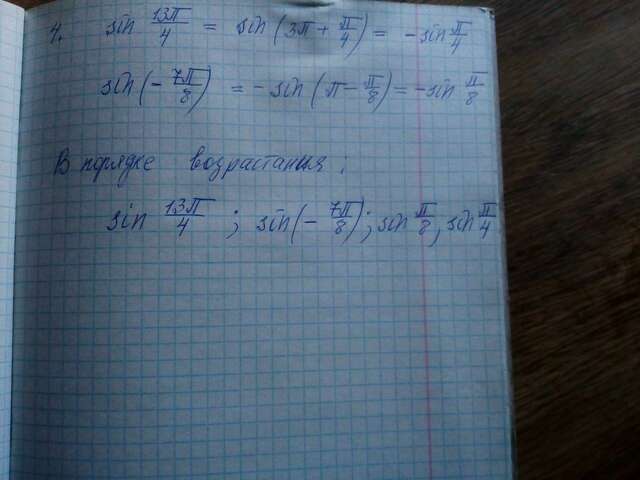 4. sin 13π/4 = sin(3π + π/4) = - sin π/4
sin(- 7π/8) = - sin(π - π/8) = - sin π/8
В порядке возрастания:
sin 13π/4 ; sin(- 7π/8); sin π/8, sin π/4